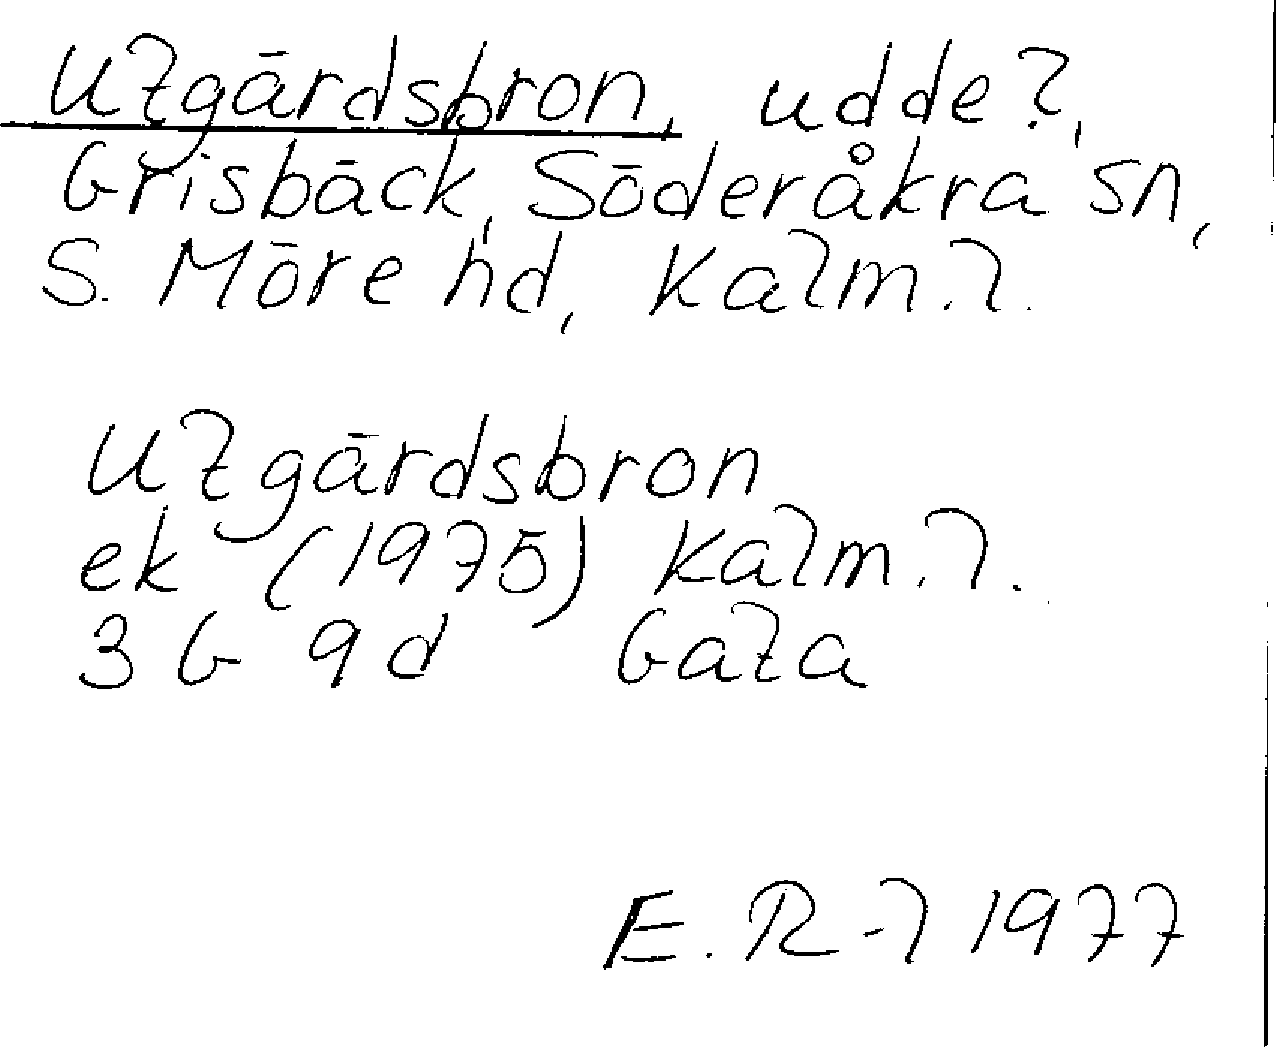 Utgärdsbron, udde?,
Grisbäck, Söderåkra sn,
S. Möre hd, Kalm. l.
Utgärdsbron
ek (1975) Kalm. l.
3 G 9d Gata
E. R-l 1977